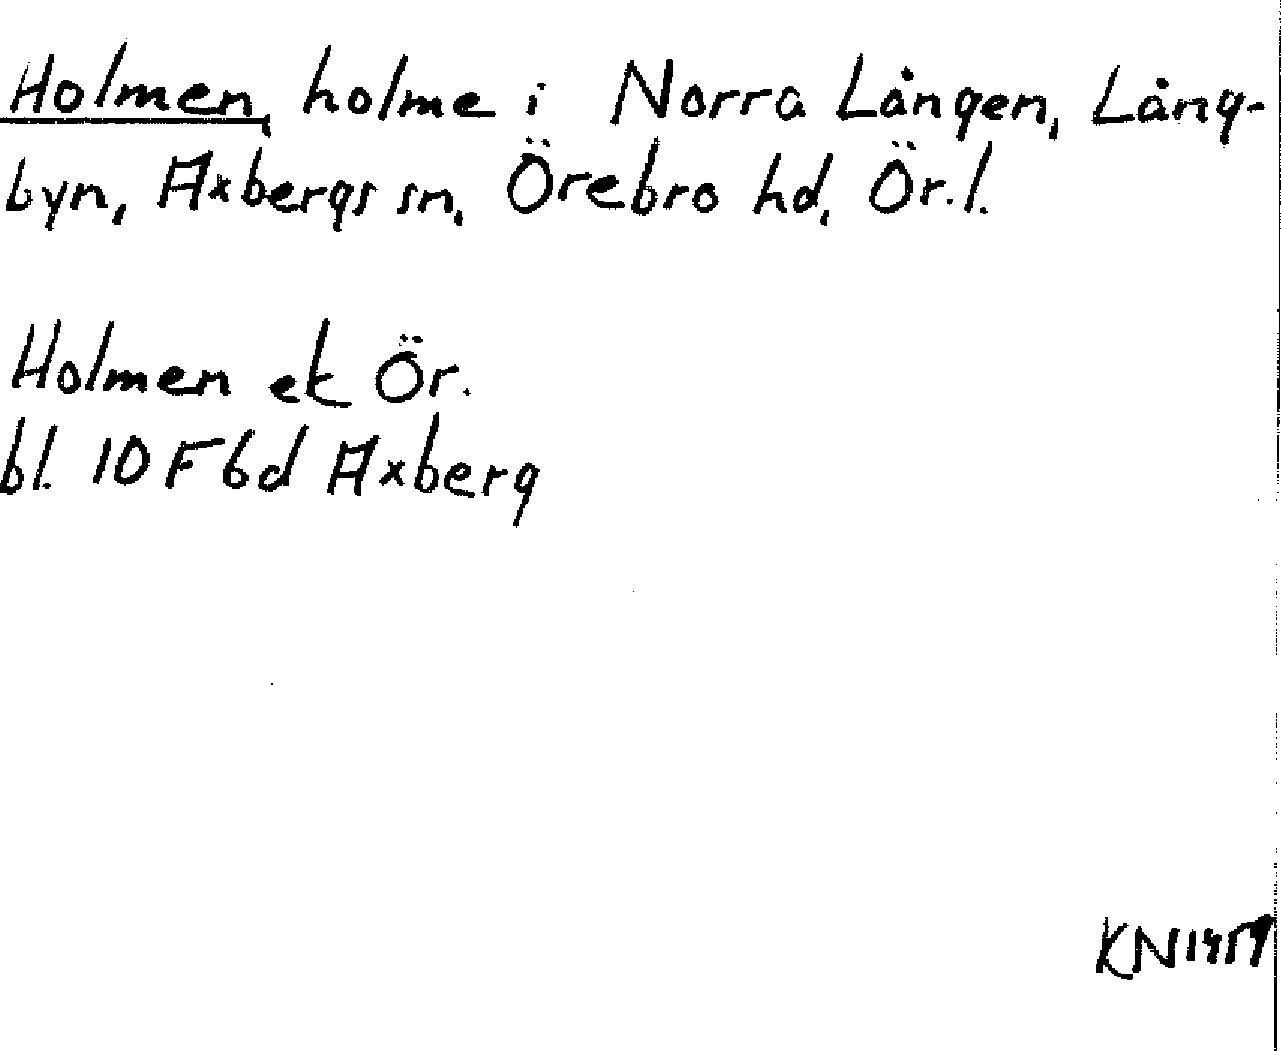 Holmen, holme i Norra Lången, Lång-
byn, Axbergs sn, Örebro hd, Ör. l.
Holmen ek Ör.
bl. 10 F 6d Axberg